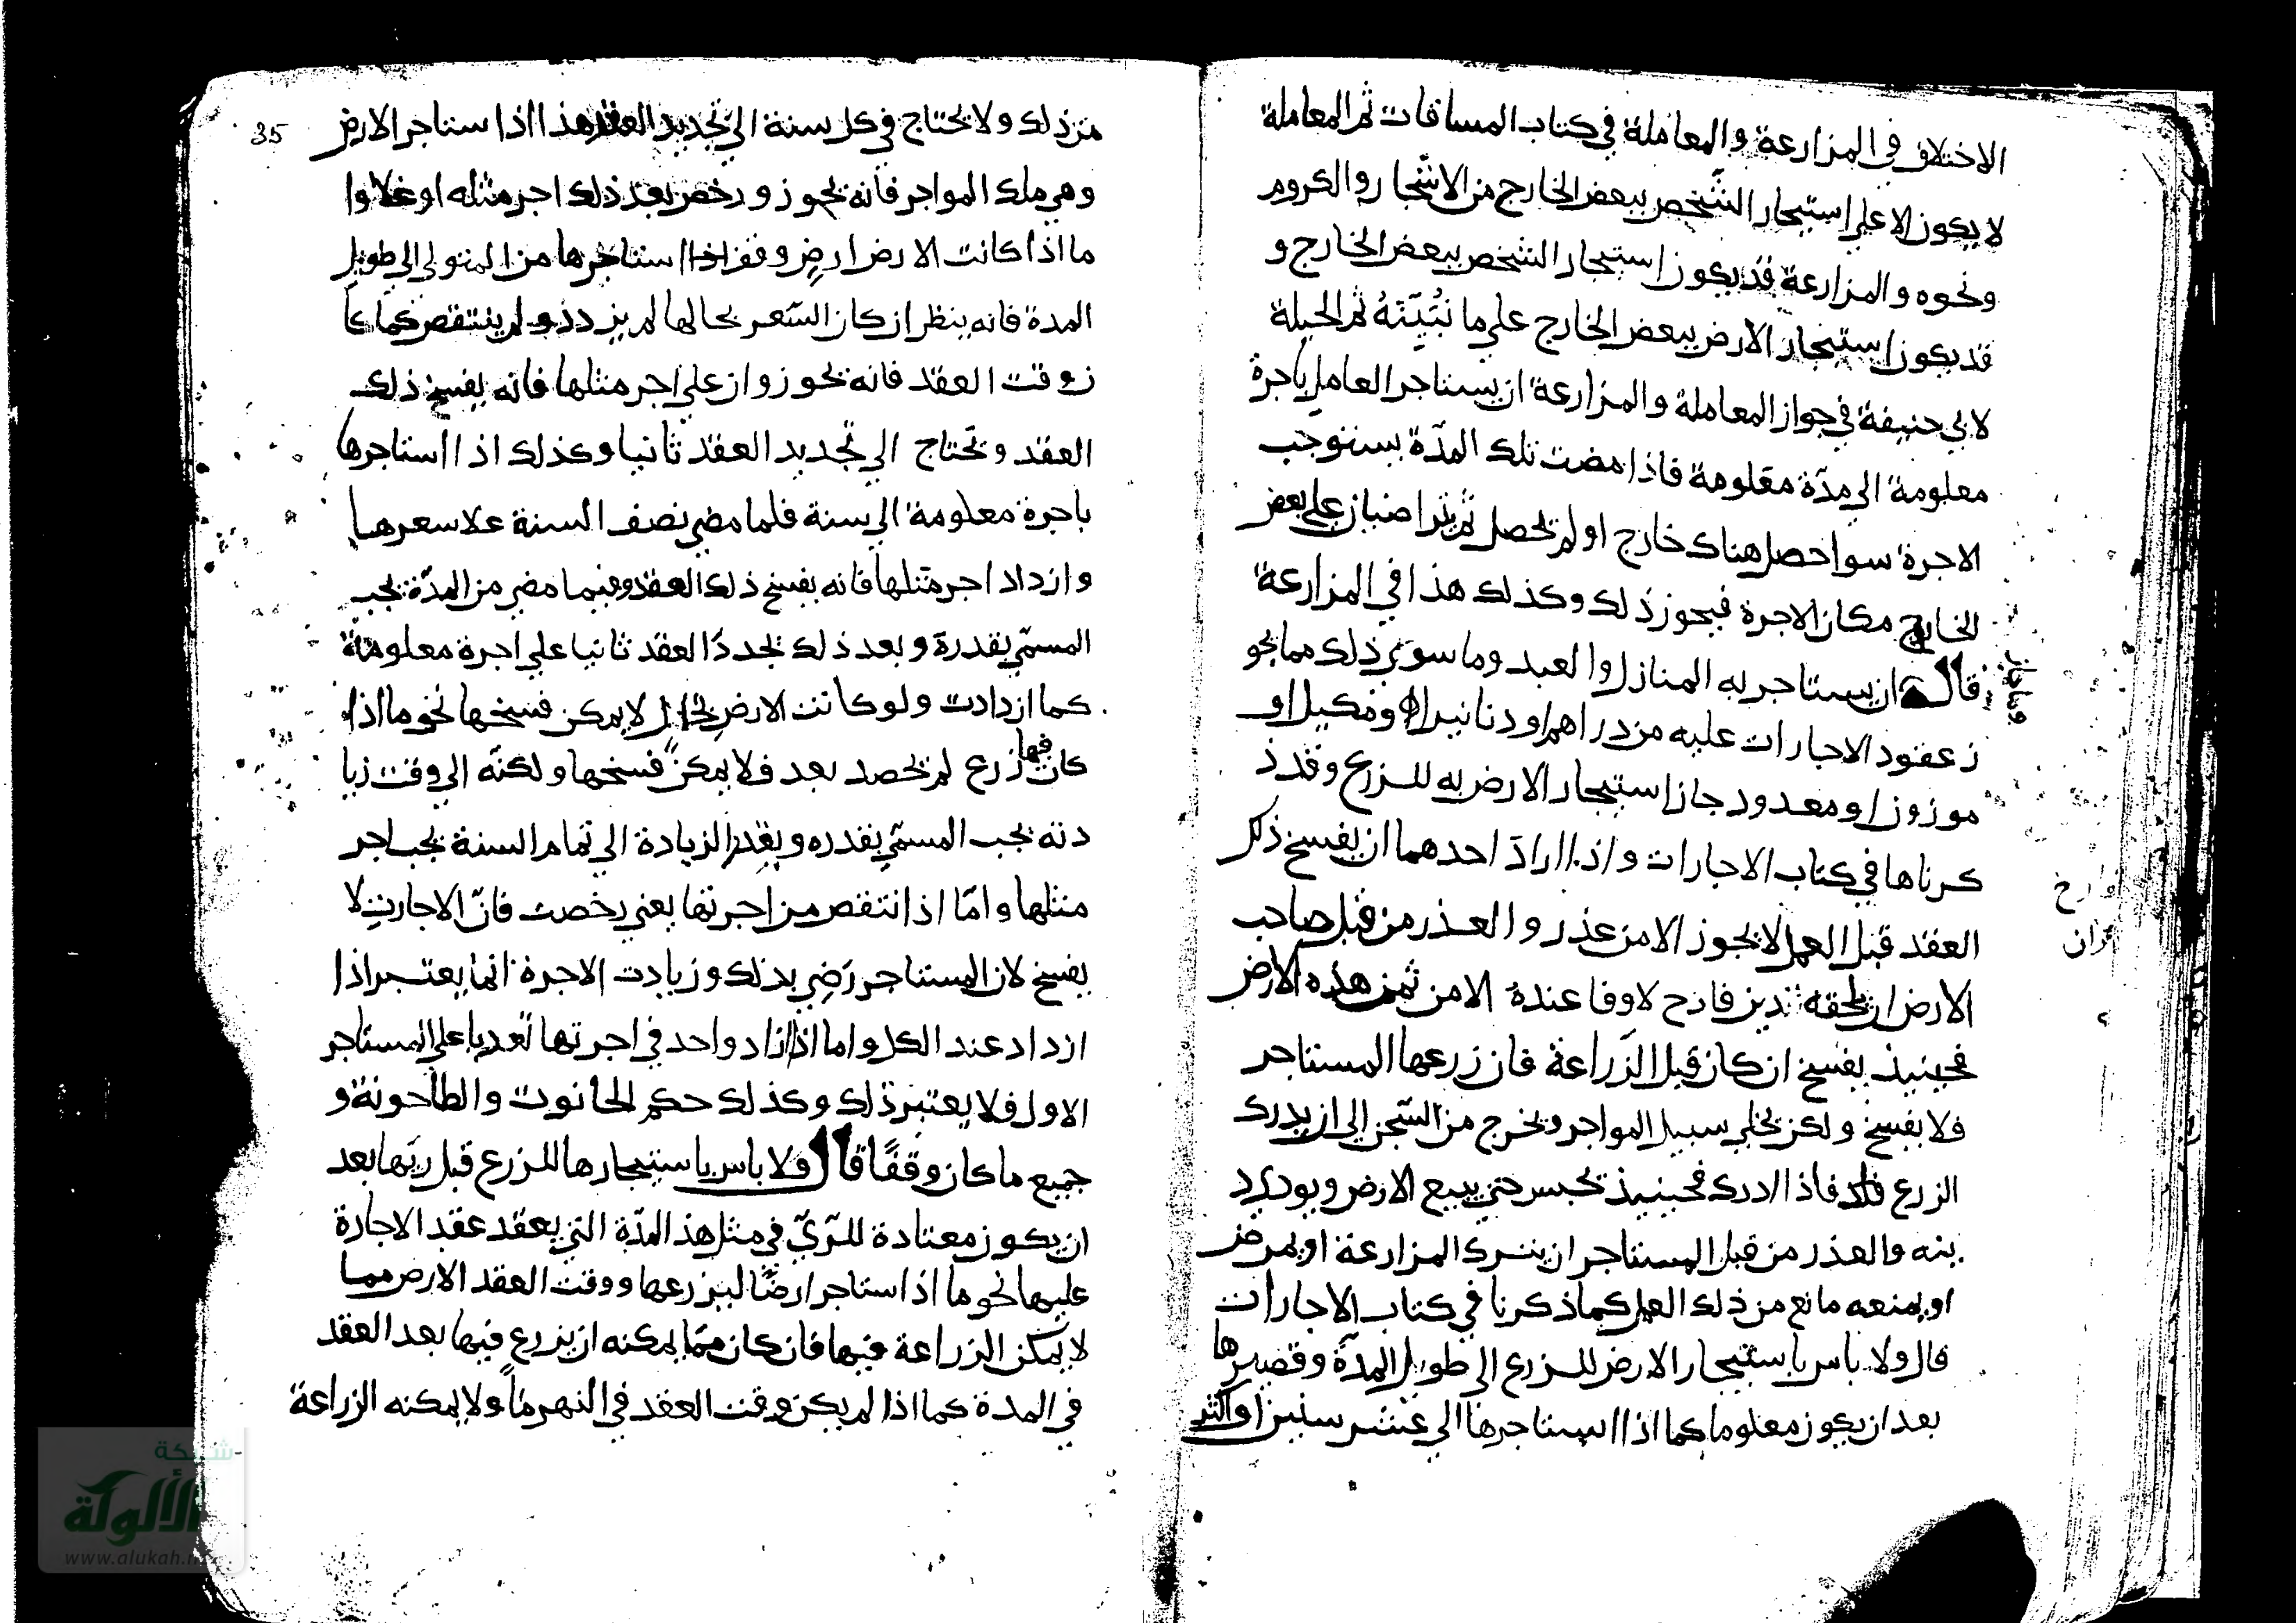 الاختلاف في المزارعة والمعاملة في كتاب المساقات ثم المعاملة
لا يكون الا علي استيجار الشخص ببعض الخارج من الاشجار والكروم
ونحوه والمزارعة قد يكون استيجار الشخص ببعض الخارج و
قد يكون استيجار الارض ببعض الخارج علي ما نبينه ثم الحيلة
لابي حنيفة في جواز المعاملة والمزارعة ان يستاجر العامل باجرة
معلومة الي مدة معلومة فاذا مضت تلك المدة يستوجب
الاجرة سوا حصل هناك خارج او لم يحصل ثم يتراضيان علي بعض
الخارج مكان الاجرة فيجوز ذلك وكذلك هذا في المزارعة
قال ان يستاجر به المنازل والعبد وما سوي ذلك مما يجو
ز عقود الاجارات عليه من دراهم او دنانير او مكيل او
موزون او معدود جاز استيجار الارض به للزرع وقد ذ
كرناها في كتاب الاجارات واذا اراد احدهما ان يفسخ ذلك
العقد قبل العمل لا يجوز الا من عذر والعذر من قبل صاحب
الارض ان يلحقه دين فادح لا وفا عنده الا من ثمن هذه الارض
فحينيذ يفسخ ان كان قبل الزراعة فان زرعها المستاجر
فلا يفسخ ولكن يخلي سبيل المواجر ويخرج من السجن الي ان يدرك
الزرع فاذا ادرك فحينيذ يحبس حتي يبيع الارض ويودي د
ينه والعذر من قبل المستاجر ان يترك المزارعة او يمرض
او يمنعه مانع من ذلك العمل كما ذكرنا في كتاب الاجارات
قال ولا باس باستيجار الارض للزرع الي طويل المدة وقصيرها
بعد ان يكون معلوما كما اذا استاجرها الي عشر سنين او اكثر
35
من ذلك ولا يحتاج في كل سنة الي تجديد العقد هذا اذا ستاجر الارض
وهي ملك المواجر فانه يجوز ورخص بعد ذلك اجر مثله او غلا وا
ما اذا كانت الارض ارض وقف اذا ستاجرها من المتولي الي طويل
المدة فانه ينظر ان كان السعر بحالها لم يزدد ولم ينتقص كما كا
ن وقت العقد فانه يجوز وان علي اجر مثلها فانه يفسخ ذلك
العقد وتحتاج الي تجديد العقد ثانيا وكذلك اذا استاجرها
باجرة معلومة الي سنة فلما مضي نصف السنة علا سعرها
وازداد اجر مثلها فانه يفسخ ذلك العقد وفيما مضي من المدة يجب
المسمي بقدرة وبعد ذلك يجدد العقد ثانيا علي اجرة معلومة
كما ازدادت ولو كانت الارض بحال لا يمكن فسخها نحو ما اذا
كان فيها زرع لم يحصد بعد فلا يمكن فسخها ولكنه الي وقت زيا
دته يجب المسمي بقدره وبقدر الزيادة الي تمام السنة يجب اجر
مثلها واما اذا انتقص من اجرتها يعني رخصت فان الاجارت لا
يفسخ لان المستاجر رضي بذلك وزيادت الاجرة انما يعتبر اذا
ازداد عند الكل واما اذا زاد واحد في اجرتها تعديا علي المستاجر
الاول فلا يعتبر ذلك وكذلك حكم الحانوت والطاحونة و
جميع ما كان وقفا قال ولا باس باستيجارها للزرع قبل ريها بعد
ان يكون معتادة للري في مثل هذ المدة التي يعقد عقد الاجارة
عليها نحو ما اذا ستاجر ارضا ليزرعها ووقت العقد الارض مما
لا يمكن الزراعة فيها فان كان مما يمكنه ان يزرع فيها بعد العقد
في المدة كما اذا لم يكن وقت العقد في النهر ما ولا يمكنه الزراعة
شبكة
الألوكة